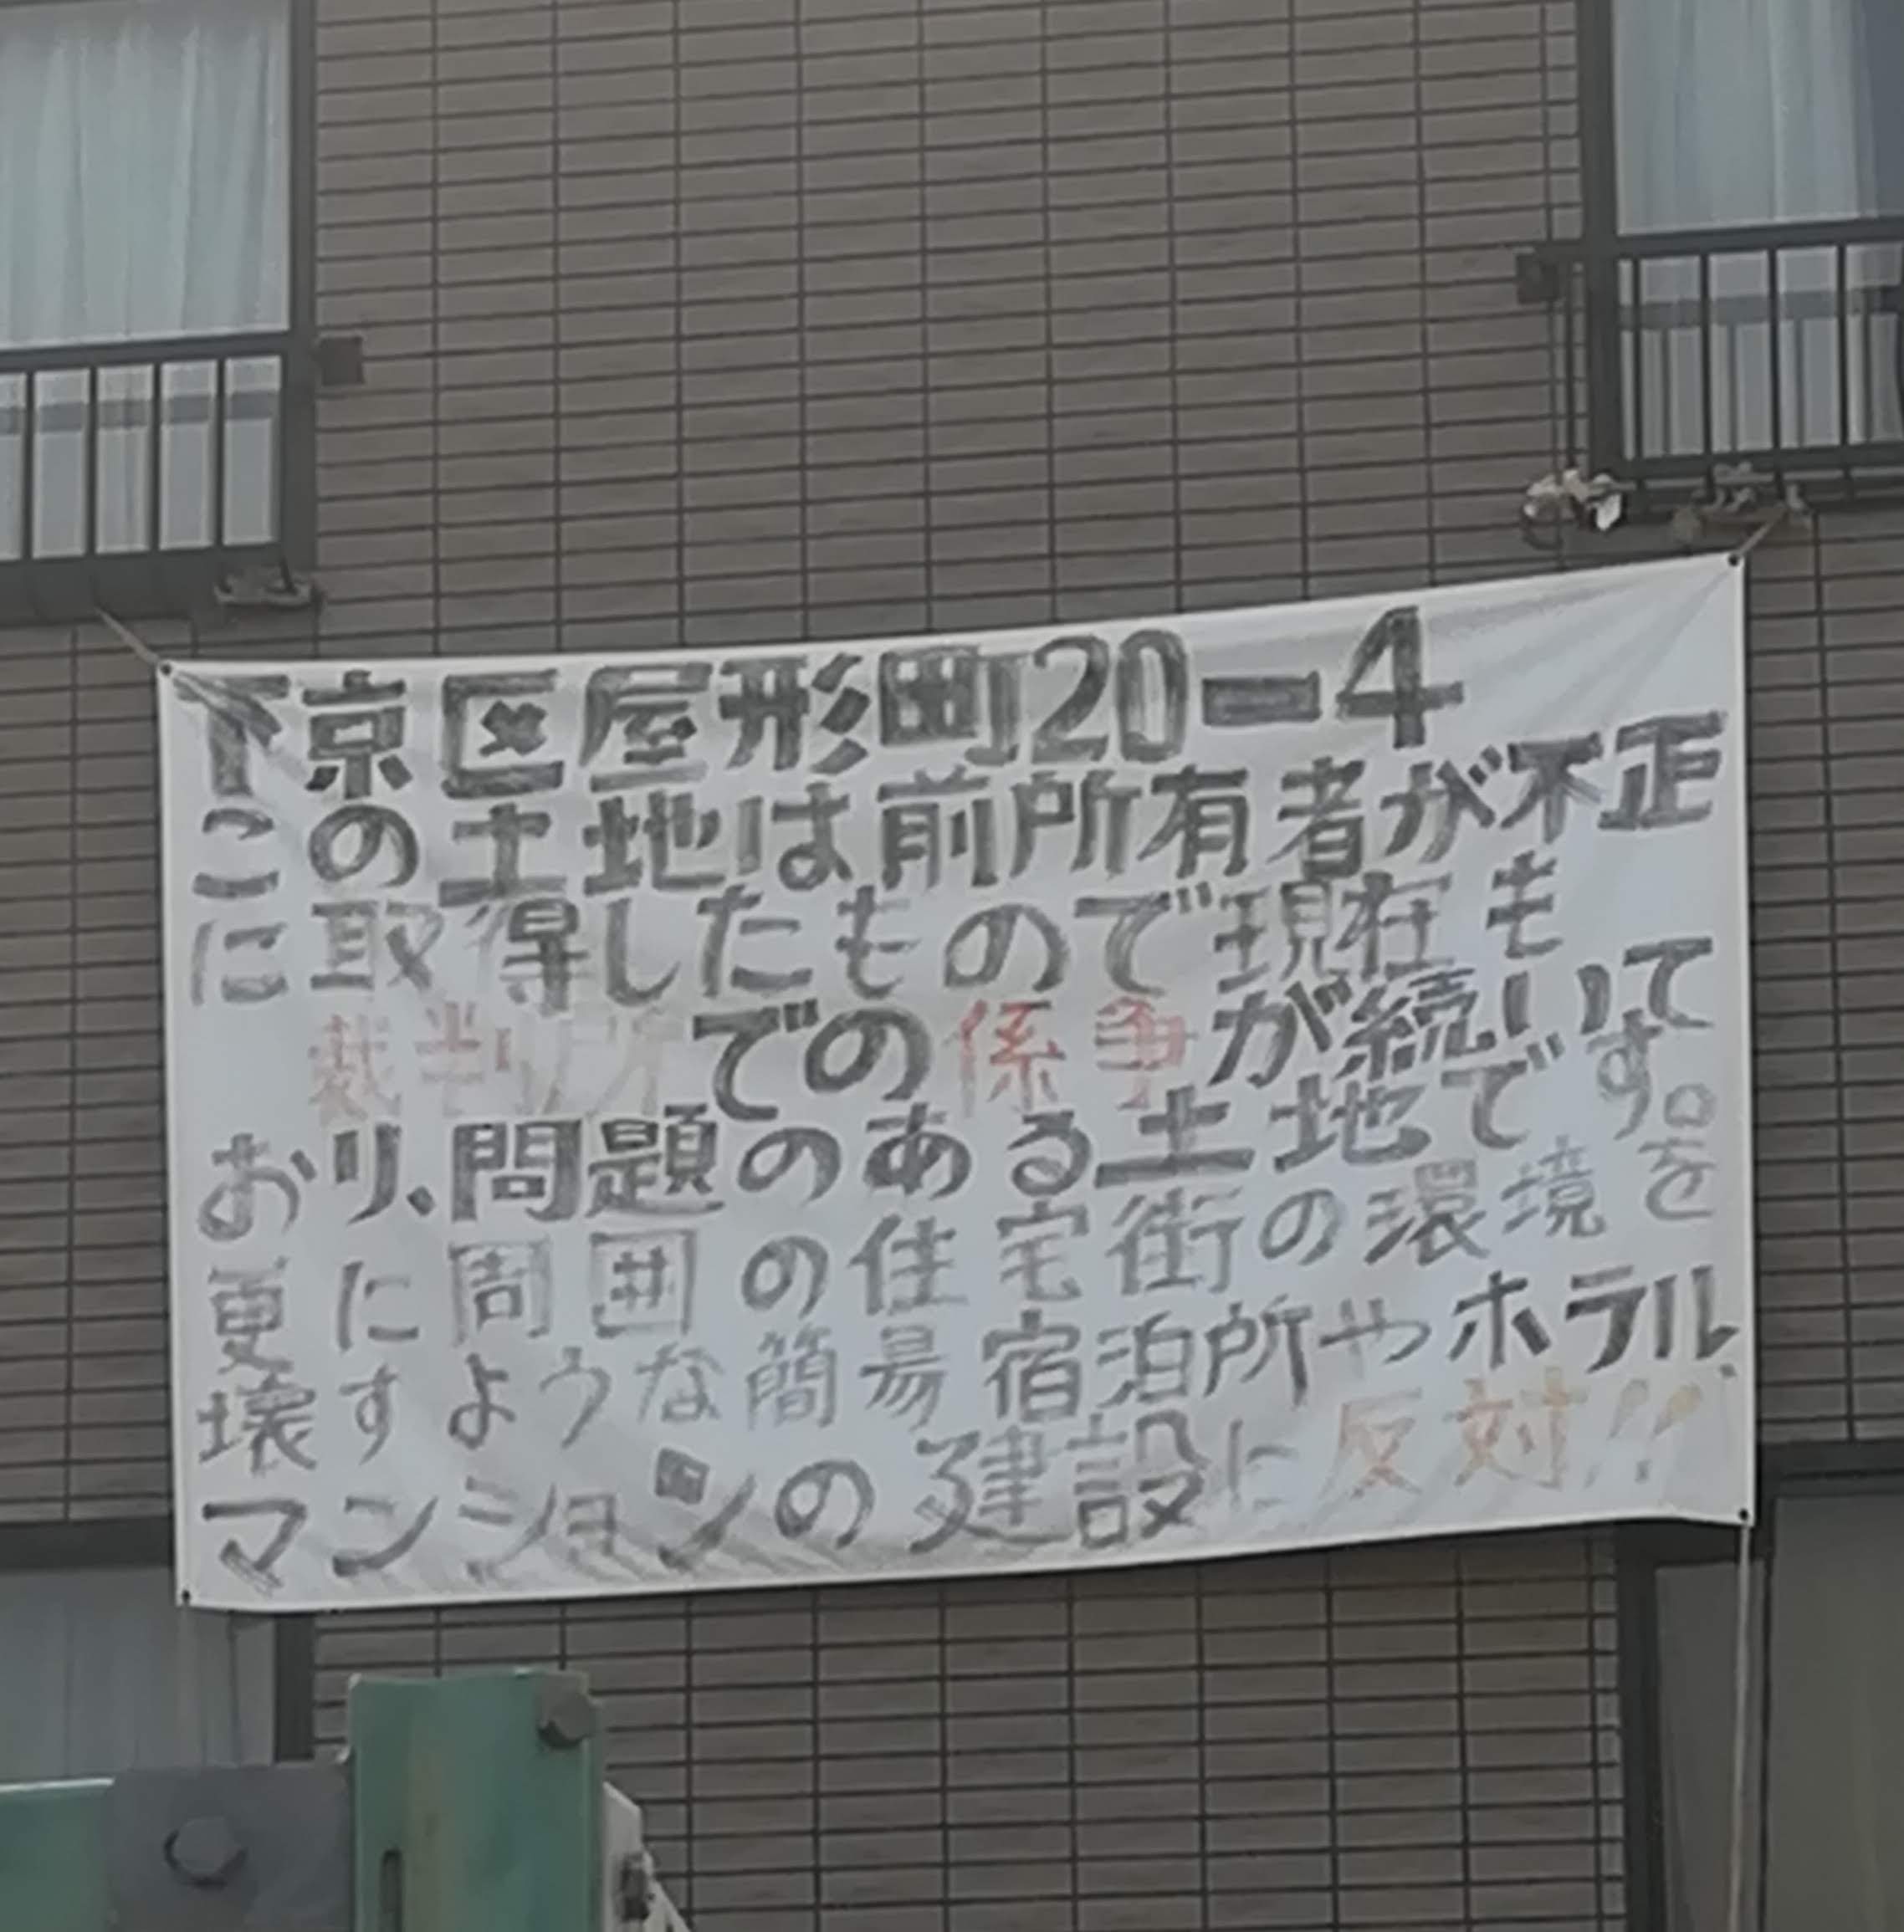 下京区屋形町20-4
この土地は前所有者が不正
に取得したもので現在も
裁判所での係争が続いて
おり、問題のある土地です。
更に周囲の住宅街の環境を
壊すような簡易宿泊所やホテル、
マンションの建設に反対!!